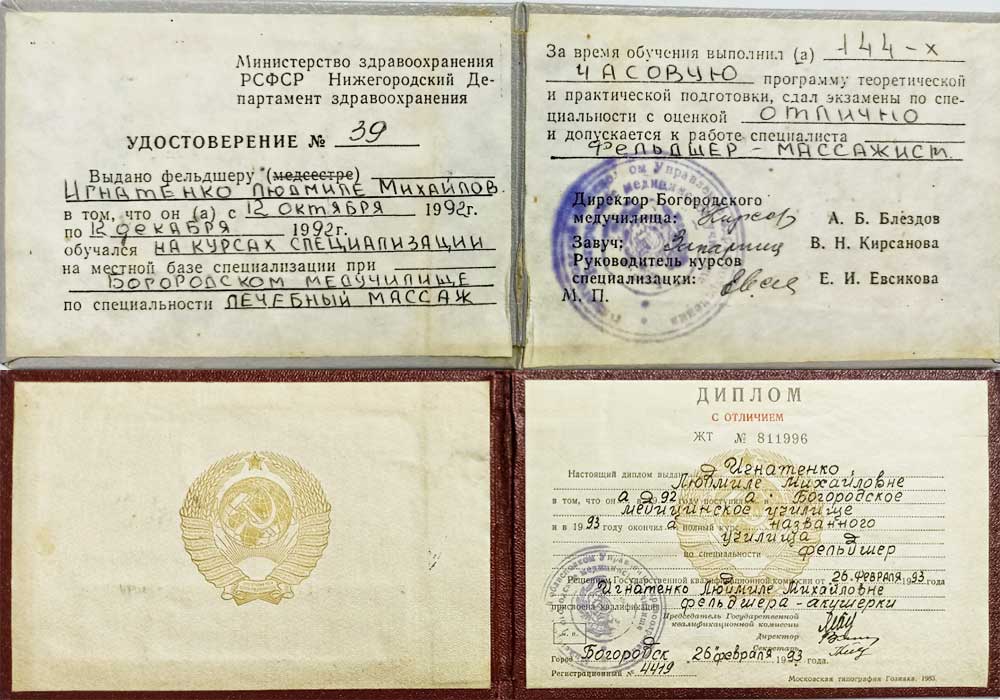 Министерство здравоохранения
РСФСР Нижегородский Де-
партамент здравоохранения
УДОСТОВЕРЕНИЕ № 39
Выдано фельдшеру (медсестре)
ИГНАТЕНКО ЛЮДМИЛЕ МИХАЙЛОВ.
в том, что он (а) с 12 ОКТЯБРЯ 1992г.
по 12 ДЕКАБРЯ 1992г.
обучался НА КУРСАХ СПЕЦИАЛИЗАЦИИ
на местной базе специализации при
БОГОРОДСКОМ МЕДУЧИЛИЩЕ
по специальности ЛЕЧЕБНЫЙ МАССАЖ
За время обучения выполнил (а) 144-х
ЧАСОВУЮ программу теоретической
и практической подготовки, сдал экзамены по спе-
циальности с оценкой ОТЛИЧНО
и допускается к работе специалиста
ФЕЛЬДШЕР - МАССАЖИСТ.
Директор Богородского
медучилища: А. Б. Блёздов
Завуч: В. Н. Кирсанова
Руководитель курсов
специализацки: Е. И. Евсикова
М. П.
ДИПЛОМ
С ОТЛИЧИЕМ
ЖТ № 811996
Настоящий диплом выдан Игнатенко
Людмиле Михайловне
в том, что он а в 1992 году поступил а в Богородское
медицинское училище
и в 1993 году окончил а полный курс названного
училища
по специальности фельдшер
Решением Государственной квалификационной комиссии от 26 февраля 1993 года
Игнатенко Людмиле Михайловне
присвоена квалификация фельдшера-акушерки
Председатель Государственной
квалификационной комиссии
Директор
Секретарь
М. п.
Город Богородск 26 февраля 1993 года.
Регистрационный № 4419
Московская типография Гознака. 1983.